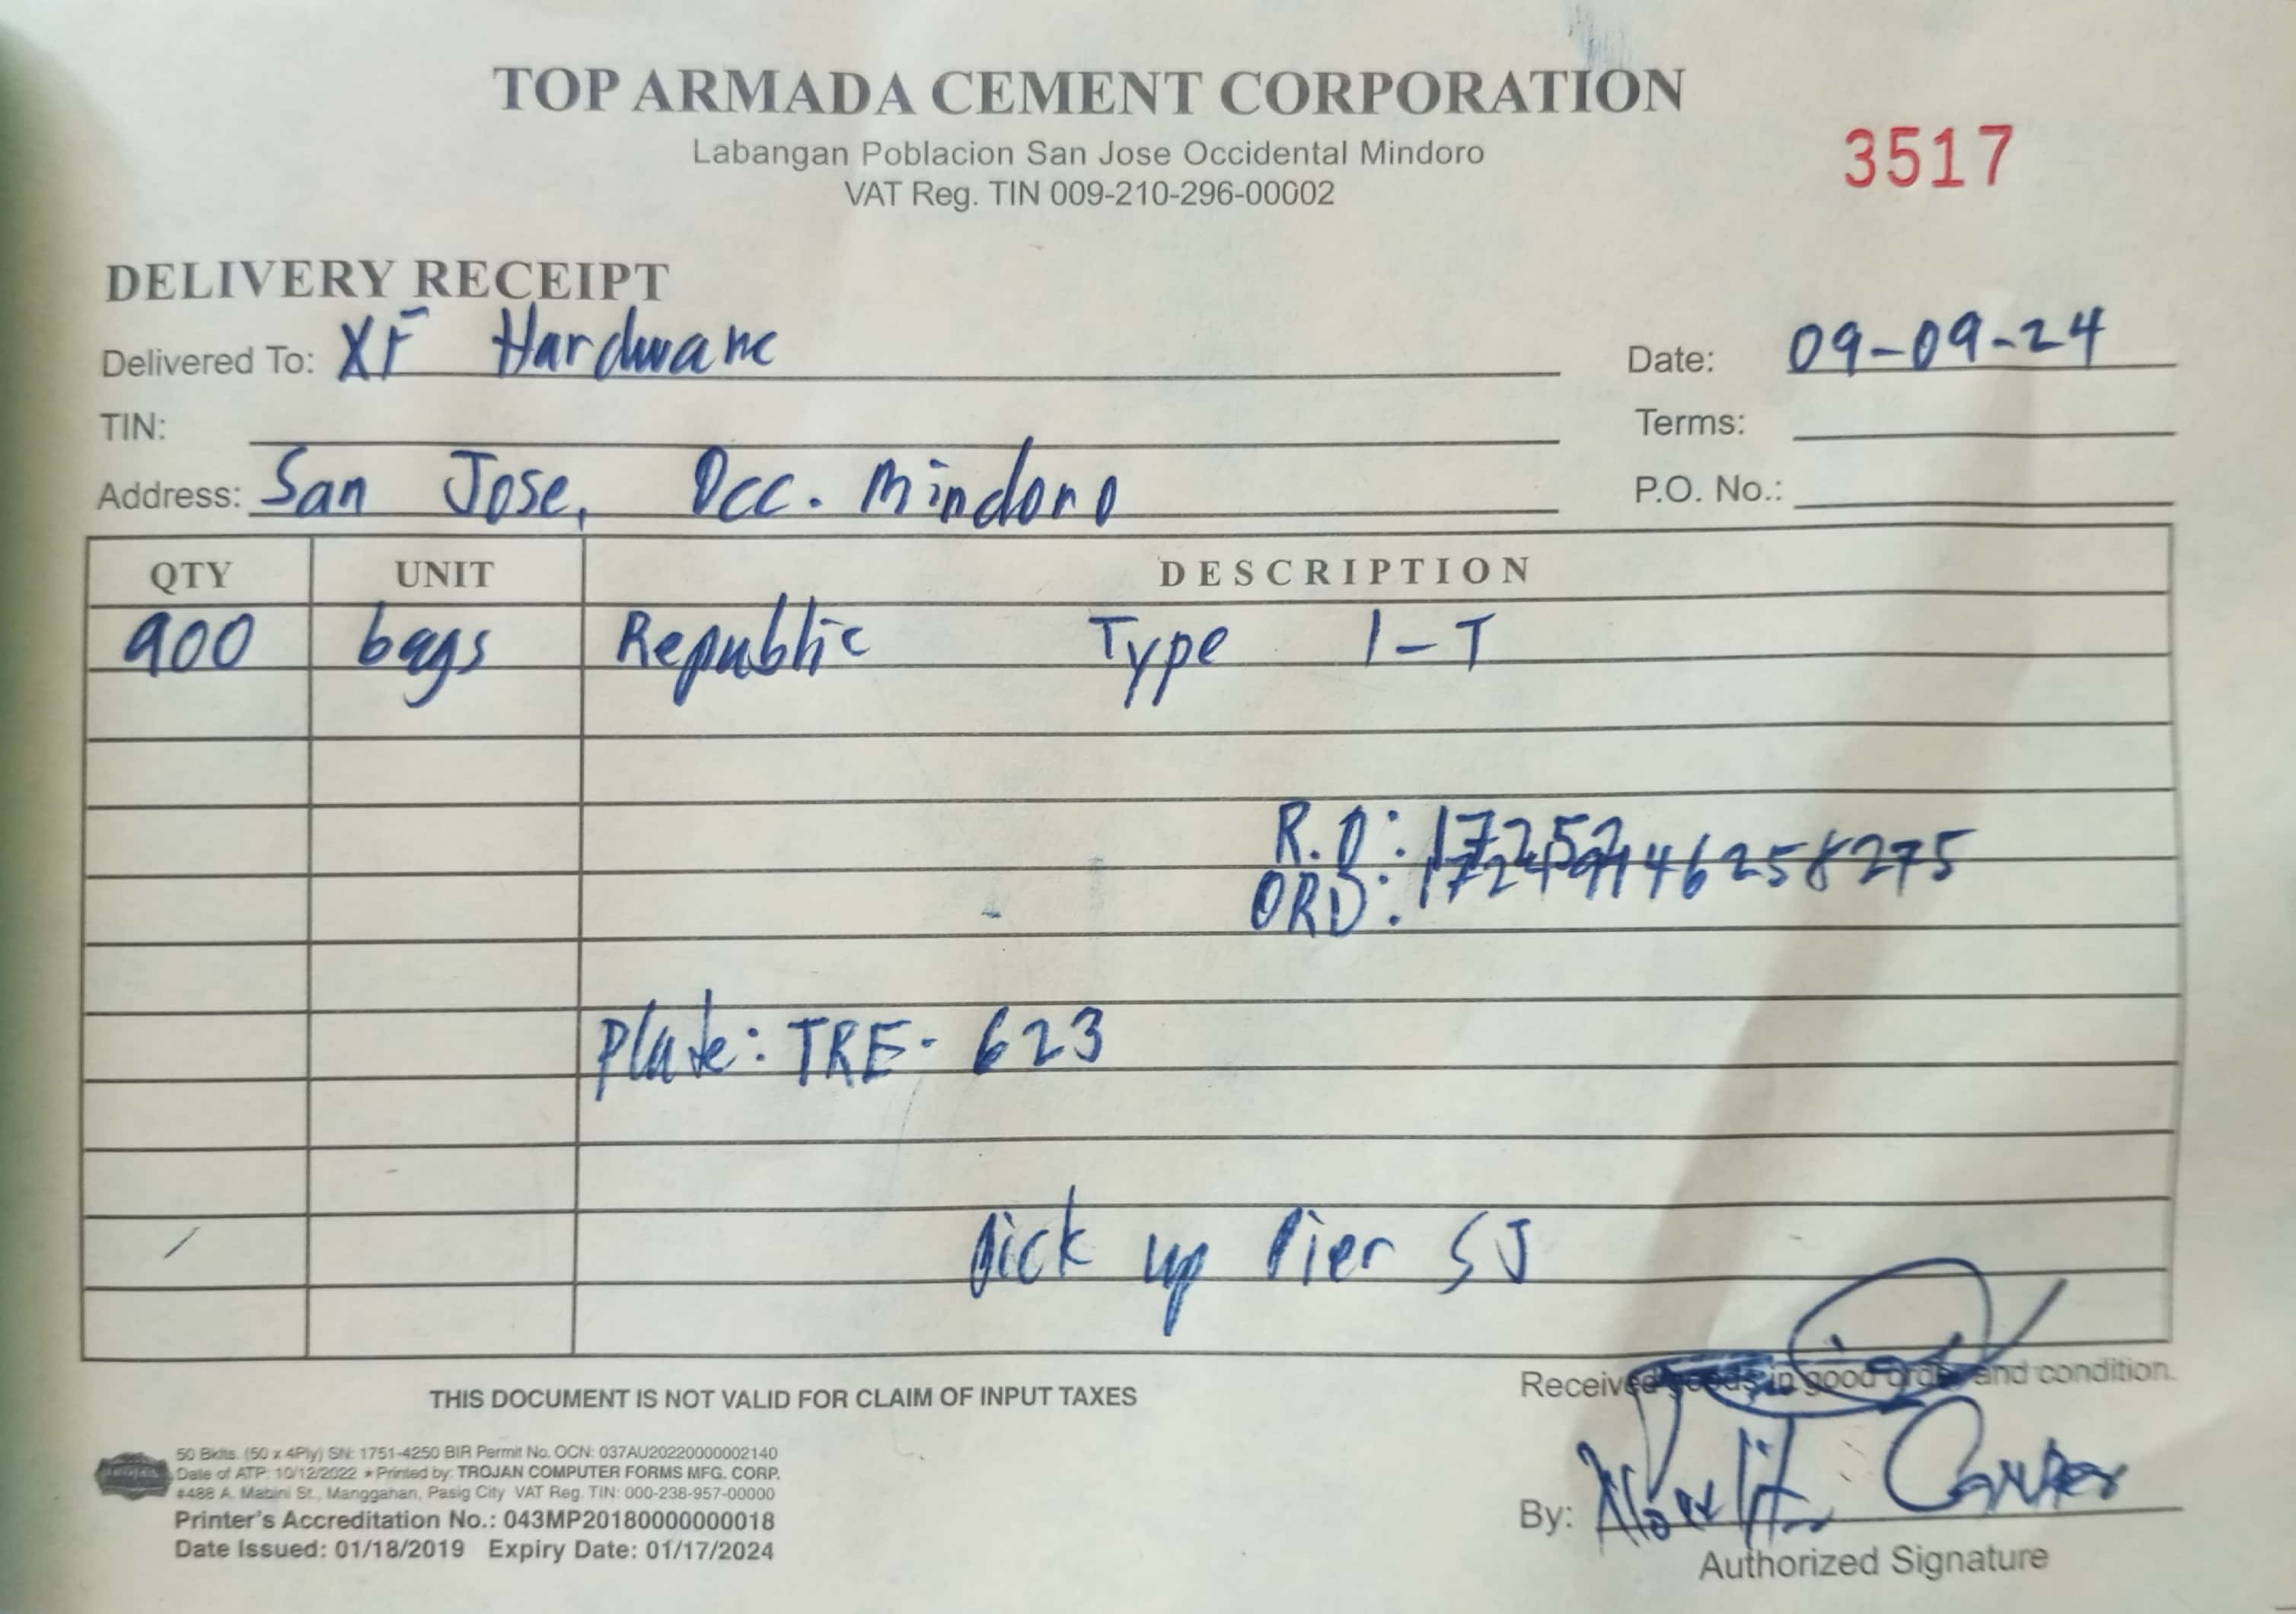 TOP ARMADA CEMENT CORPORATION
Labangan Poblacion San Jose Occidental Mindoro
VAT Reg. TIN 009-210-296-00002
3517
DELIVERY RECEIPT
Delivered To: XF Hardware
Date: 09-09-24
TIN:
Terms:
Address: San Jose, Occ. Mindoro
P.O. No.:
QTY UNIT DESCRIPTION
900 bags Republic Type 1-T
R.O:
ORD:
Plate: TRE- 623
Pick up Pier SJ
THIS DOCUMENT IS NOT VALID FOR CLAIM OF INPUT TAXES
Received goods in good order and condition.
50 Bklts. (50 x 4Ply) SN: 1751-4250 BIR Permit No. OCN: 037AU20220000002140
Date of ATP: 10/12/2022 * Printed by: TROJAN COMPUTER FORMS MFG. CORP.
#488 A. Mabini St., Manggahan, Pasig City VAT Reg. TIN: 000-238-957-00000
Printer's Accreditation No.: 043MP20180000000018
Date Issued: 01/18/2019 Expiry Date: 01/17/2024
By:
Authorized Signature